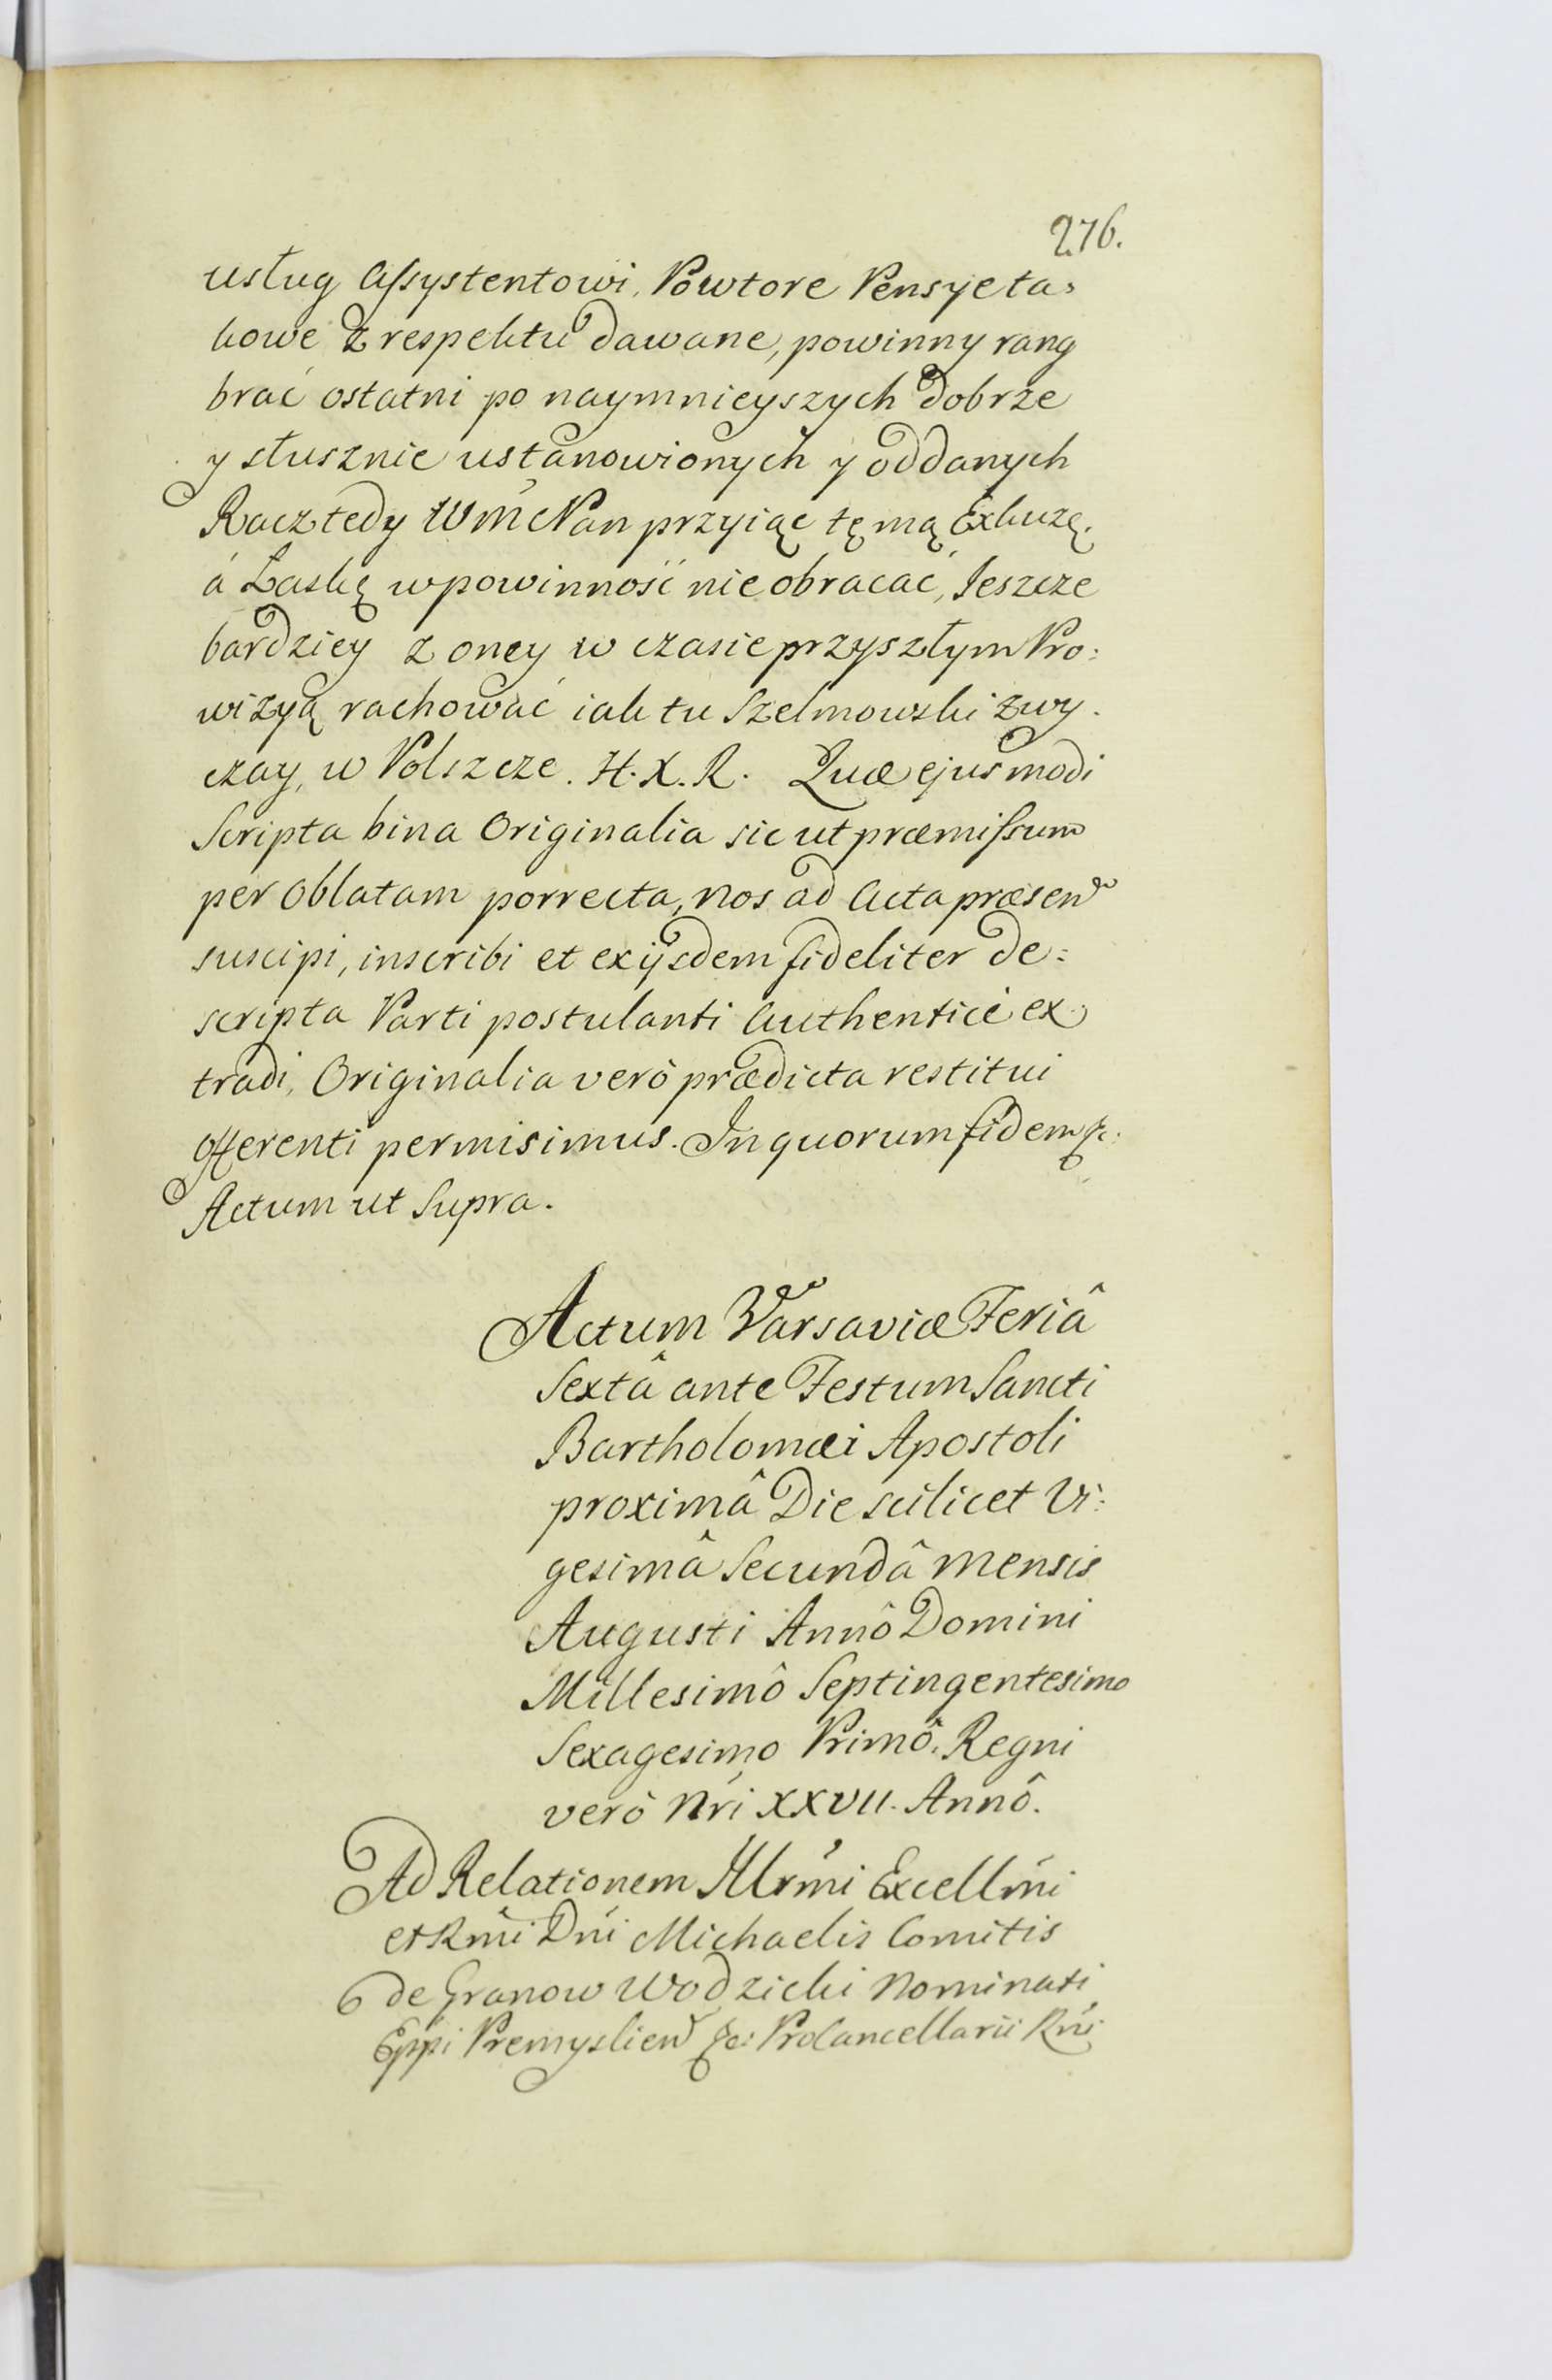 276.
usług Assystentowi, Powtore Pensye ta=
kowe z respektu dawane, powinny rang
brać ostatni po naymnieyszych dobrze
y słusznie ustanowionych y oddanych
Racz tedy WmcPan przyiąc tę mą Exkuzę.
á Łaskę w powinność nie obracać, Jeszcze
bardziey z oney w czasie przyszłym Pro:
wizyą rachować iak tu Szelmowski zwy.
czay, w Polszcze. H. X. R. Quæ ejusmodi
Scripta bina Originalia sic ut præmissum
per Oblatam porrecta, Nos ad Acta præsen
suscipi, inscribi et ex ijsdem fideliter de:
scripta Parti postulanti Authenticè ex
tradi, Originalia verò prædicta restitui
offerenti permisimus. In quorum fidem &c:
Actum ut Supra.
Actum Varsaviæ Feriâ
Sextâ ante Festum Sancti
Bartholomæi Apostoli
proximâ Die scilicet Vi:
gesimâ Secundâ Mensis
Augusti Annô Domini
Millesimô Septingentesimo
Sexagesimo Primô. Regni
verò Nri XXVII. Annô.
Ad Relationem Illrmi Excellmi
et Rmi Dni Michaelis Comitis
de Granow Wodzicki Nominati
Eppi Premyslien &c: ProCancellarii Rni